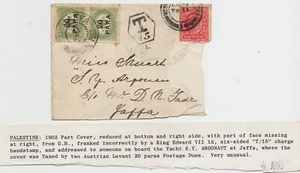 20
PARA
20
PARA
T
15
L
Miss Stuart
S. Y. Argonaut
c/o Mr D. N. Tadr
Jaffa
PALESTINE: 1902 Part Cover, reduced at bottom and right side, with part of face missing
at right, from G.B., franked incorrectly by a King Edward VII 1d, six-sided "T/15" charge
handstamp, and addressed to someone on board the Yacht S.Y. ARGONAUT at Jaffa, where the
cover was Taxed by two Austrian Levant 20 paras Postage Dues. Very unusual.